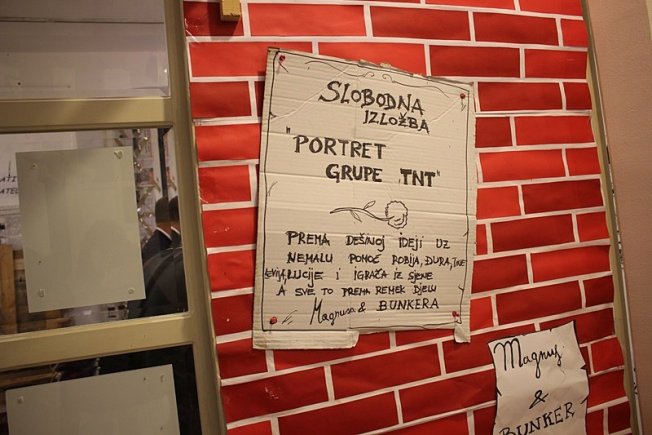 SLOBODNA
IZLOŽBA
"PORTRET
GRUPE "TNT"
PREMA DEŠINOJ IDEJI UZ
NEMALU POMOĆ ROBIJA, ĐURA, TINE
LUCIJE I IGRAČA IZ SJENE
A SVE TO PREMA REMEK DJELU
Magnusa & BUNKERA
Magnus
&
BUNKER